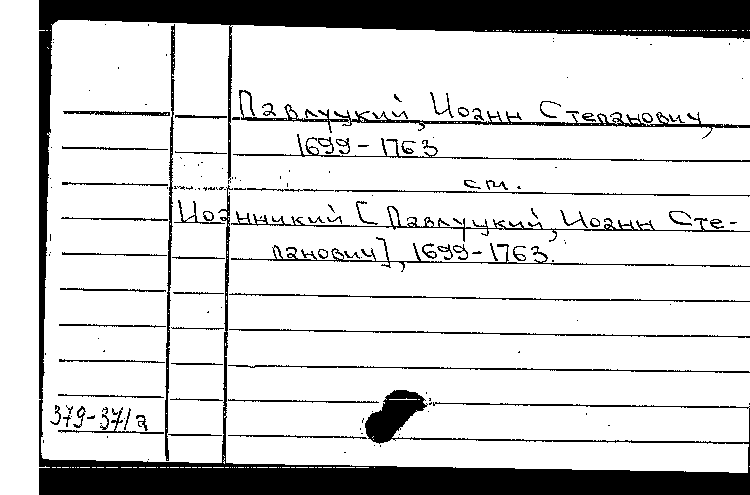 Павлуцкий, Иоанн Степанович,
1699-1763
см.
Иоанникий [Павлуцкий, Иоанн Сте-
панович], 1699-1763.
379-371а